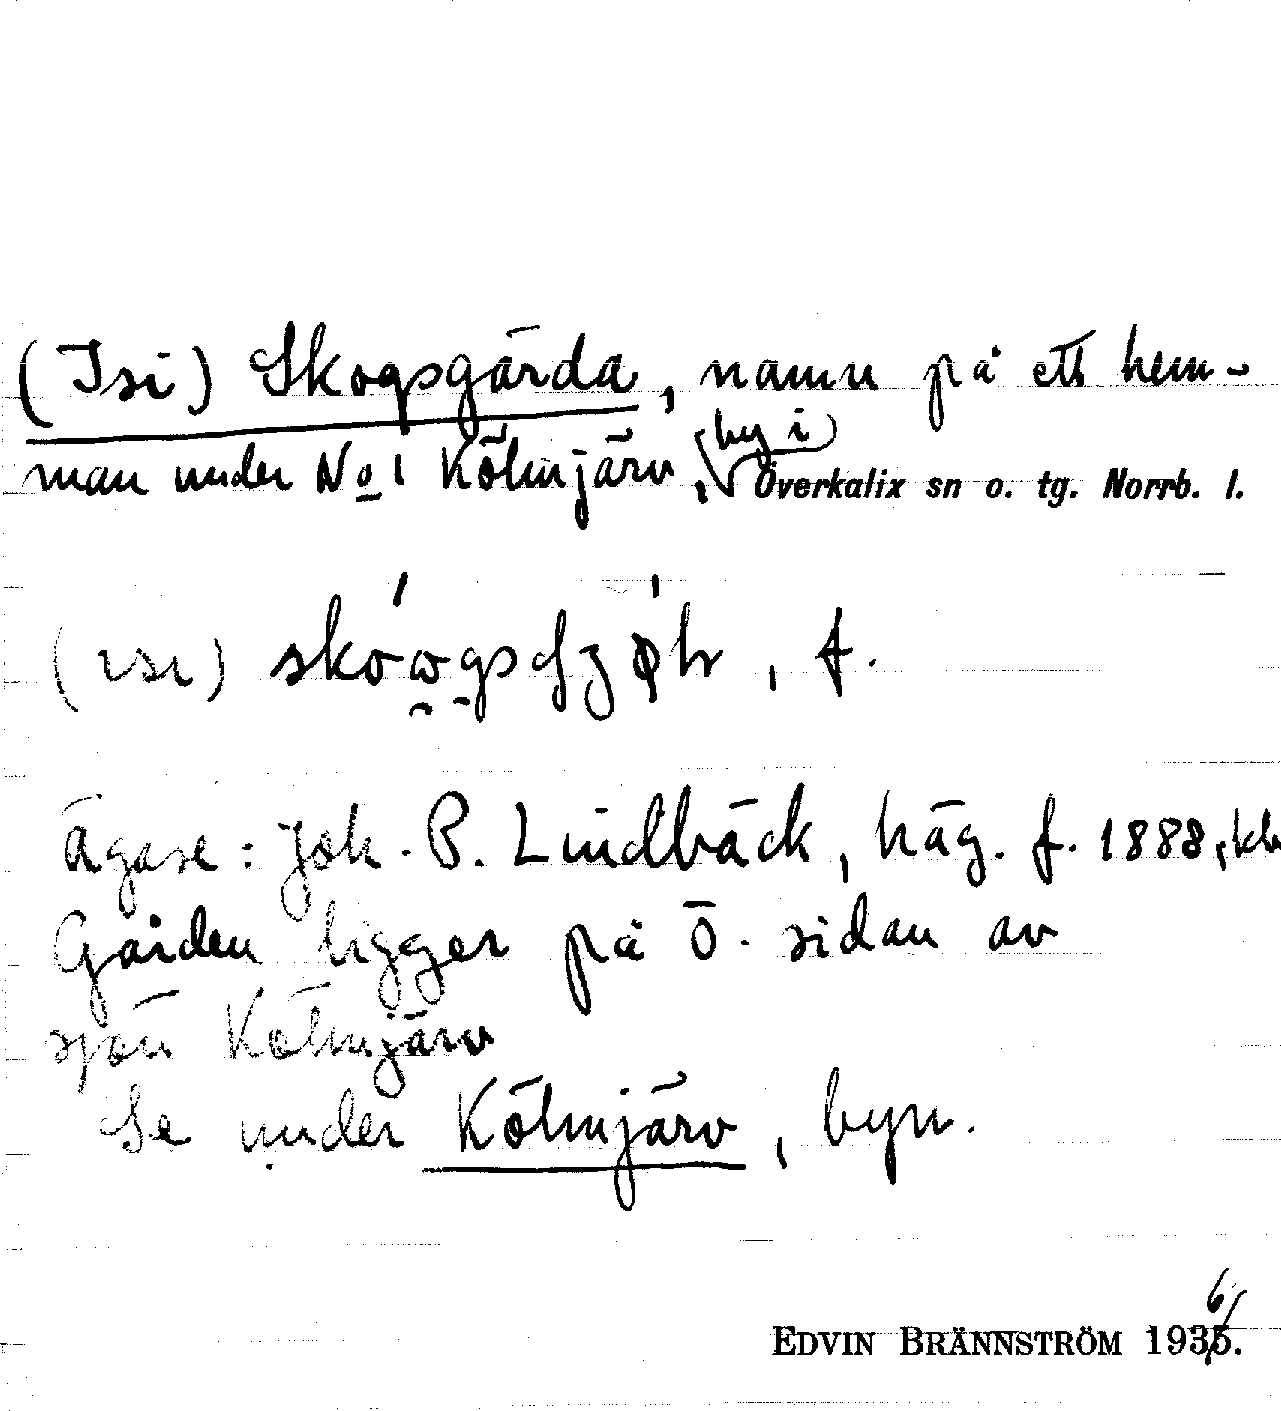 (Isi) Skogsgärda, namn på ett hem-
man under No 1 Kölmjärv, by i Överkalix sn o. tg. Norrb. l.
(ısı) , f.
Ägare: Joh. P. Lindbäck, häg. f. 1888,
Gården ligger på Ö. sidan av
sjön Kölmjärv
Se under Kölmjärv, byn.
EDVIN BRÄNNSTRÖM 1936.